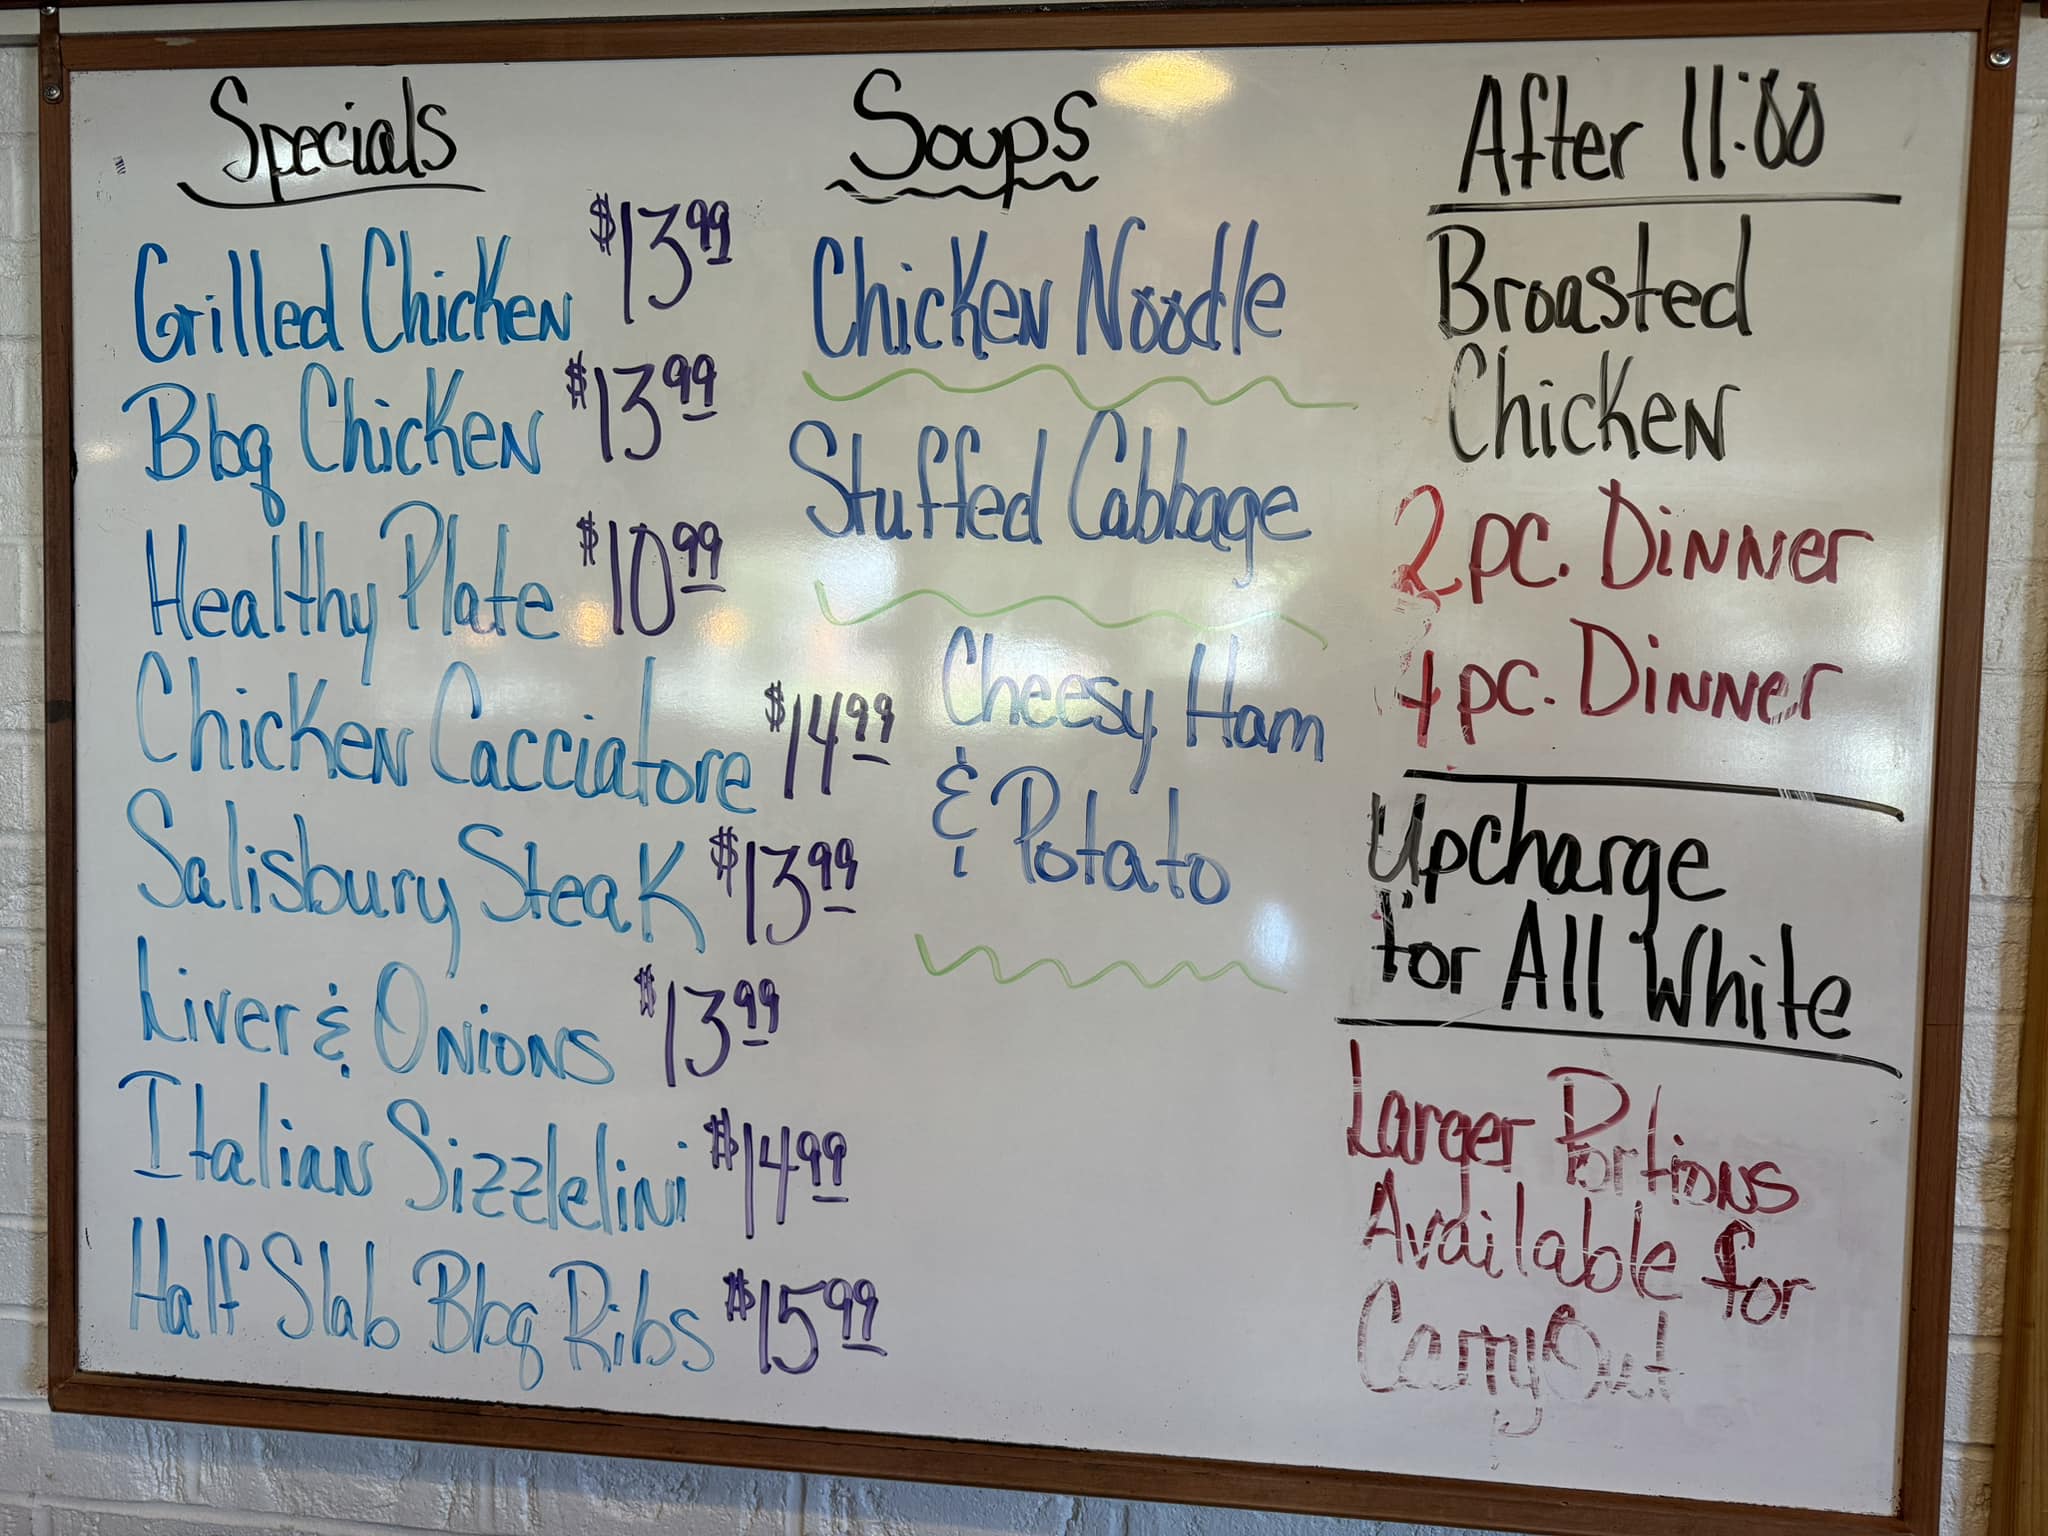 Specials
Grilled Chicken $13.99
Bbq Chicken $13.99
Healthy Plate $10.99
Chicken Cacciatore $14.99
Salisbury Steak $13.99
Liver & Onions $13.99
Italian Sizzlelini $14.99
Half Slab Bbq Ribs $15.99
Soups
Chicken Noodle
Stuffed Cabbage
Cheesy Ham
& Potato
After 11:00
Broasted
Chicken
2 pc. Dinner
4 pc. Dinner
Upcharge
for All White
Larger Portions
Available for
Carry Out